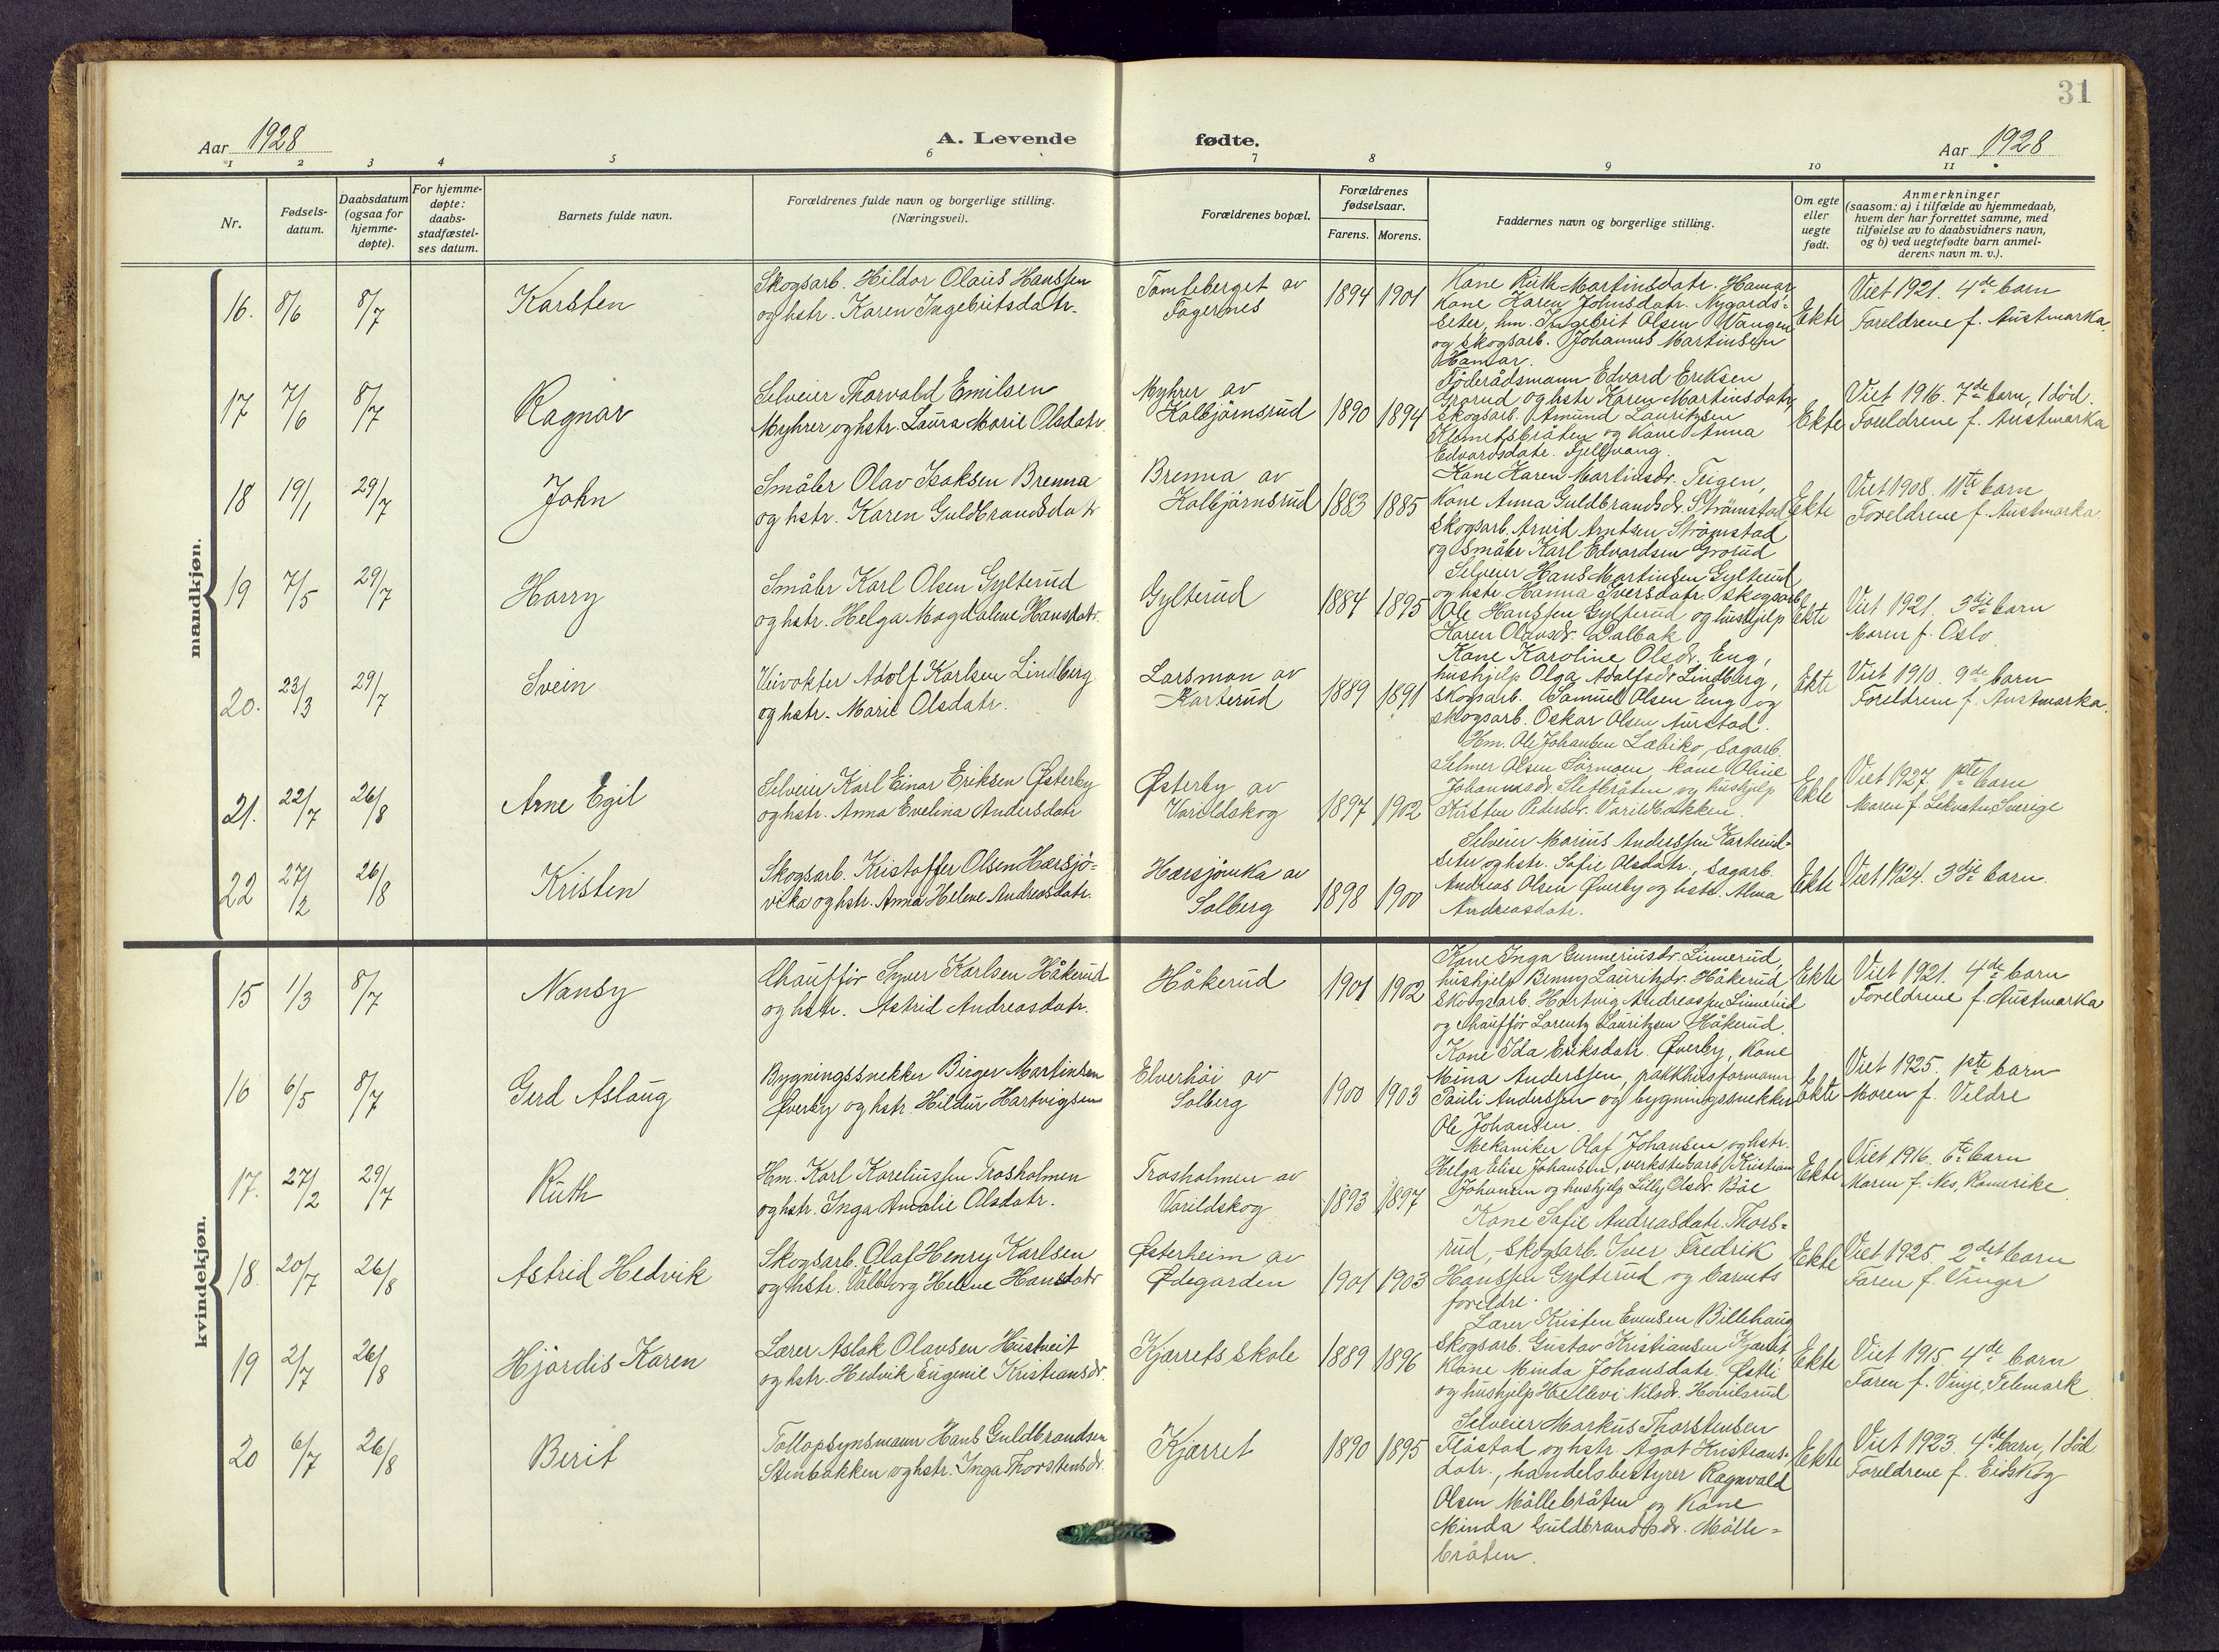 31
Aar 1928
A. Levende
fødte.
Aar 1928
1 2 3 4 5 6 7 8 9 10 11
Nr.
Fødsels-
datum.
Daabsdatum
(ogsaa for
hjemme-
døpte).
For hjemme-
døpte:
daabs-
stadfæstel-
ses datum.
Barnets fulde navn.
Forældrenes fulde navn og borgerlige stilling.
(Næringsvei).
Forældrenes bopæl.
Forældrenes
fødselsaar.
Farens. Morens.
Faddernes navn og borgerlige stilling.
Om egte
eller
uegte
født.
Anmerkninger
(saasom: a) i tilfælde av hjemmedaab,
hvem der har forrettet samme, med
tilføielse av to daabsvidners navn,
og b) ved uegtefødte barn anmel-
derens navn m. v.).
mandkjøn.
16. 8/6 8/7 Karsten
Skogsarb. Hildor Olaus Hanssen
og hstr. Karen Ingebritsdatr.
Tomleberget av
Fagernes
1894 1901
Kone Ruth Martinsdatr. Hamar
Kone Karen Johnsdatr. Nygards-
seter, hm. Ingebrit Olsen Vangen
og skogsarb. Johannes Martinsen
Hamar.
Ekte
Viet 1921. 4de barn
Foreldrene f. Austmarka.
17 7/6 8/7 Ragnar
Selveier Thorvald Emilsen
Myhrer og hstr. Laura Marie Olsdatr.
Myhrer av
Kolbjørnsrud
1890 1894
Föderådsmann Edvard Eriksen
Grorud og hstr Karen Martinsdatr,
Skogsarb. Amund Lauritzsen
Klemetsbråten og Kone Anna
Edvardsdatr. Fjellvang.
Ekte
Viet 1916. 7de barn, 1 död.
Foreldrene f. Austmarka
18 19/1 29/7 John
Småbr Olav Isaksen Brenna
og hstr. Karen Guldbrandsdatr
Brenna av
Kolbjørnsrud
1883 1885
Kone Karen Martinsdr. Teigen,
Kone Anna Guldbrandsdr. Strömstad,
Skogsarb. Arvid Arntsen Strömstad
og Småbr Karl Edvardsen Grorud
Ekte
Viet 1908. 11te barn
Foreldrene f. Austmarka.
19 7/5 29/7 Harry
Småbr Karl Olsen Gylterud
og hstr. Helga Magdalene Hansdatr.
Gylterud
1884 1895
Selveier Hans Martinsen Gylterud
og hstr Hanna Iversdatr. skogsarb
Ole Hanssen Gylterud og hushjelp
Karen Olavsdr. Dalbak
Ekte
Viet 1921. 3dje barn
Moren f. Oslo
20. 23/3 29/7 Svein
Veivokter Adolf Karlsen Lindberg
og hstr. Marie Olsdatr.
Larsmon av
Karterud
1889 1891
Kone Karoline Olsdr. Eng,
hushjelp Olga Adolfsdr Lindberg,
Skogsarb. Samuel Olsen Eng og
skogsarb. Oskar Olsen Aurstad.
Ekte
Viet 1910. 9de barn
Foreldrene f. Austmarka.
21. 22/7 26/8 Arne Egil
Selveier Karl Einar Eriksen Østerby
og hstr. Anna Evelina Andersdatr
Østerby av
Varildskog
1897 1902
Hm. Ole Johansen Læbiko, Sagarb.
Selmer Olsen Sörmoen, kone Oline
Johannesdr. Sletbråten og hushjelp
Kirsten Pedersdr. Varildbakken.
Ekte
Viet 1927. 1ste barn
Moren f. Lekvatn, Sverige
22 27/2 26/8 Kristen
Skogsarb. Kristoffer Olsen Hærsjö-
vika og hstr. Anna Helene Andreasdatr.
Hærsjövika av
Solberg
1898 1900
Selveier Marius Anderssen Karterud-
Seter og hstr. Sofie Olsdatr., Sagarb.
Andreas Olsen Øverby og hstr. Alma
Andreasdatr.
Ekte
Viet 1924. 3dje barn.
kvindekjøn.
15 1/3 8/7 Nansy
Chauffør Syver Karlsen Håkerud
og hstr. Astrid Andreasdatr.
Håkerud
1901 1902
Kone Inga Gunneriusdr. Linnerud,
hushjelp Benny Lauritzdr. Håkerud,
Skogsarb. Hartvig Andreassen Linnerud
og Chauffør Lorentz Lauritzsen Håkerud.
Ekte
Viet 1921. 4de barn
Foreldrene f. Austmarka
16 6/5 8/7 Gerd Aslaug
Bygningssnekker Birger Martinsen
Øverby og hstr. Hildur Hartvigsen
Elverhöi av
Solberg
1900 1903
Kone Ida Eriksdatr. Øverby, Kone
Mina Anderssen, pakkhusformann
Pauli Anderssen og bygningssnekker
Ole Johansen.
Ekte
Viet 1925. 1ste barn
Moren f. Veldre
17. 27/2 29/7 Ruth
Hm. Karl Kareliussen Trosholmen
og hstr. Inga Amalie Olsdatr.
Trosholmen av
Varildskog
1893 1897
Mekaniker Olaf Johansen og hstr.
Helga Elise Johansen, verkstedarb. Kristian
Johansen og hushjelp Lilly Olsdr. Böe
Ekte
Viet 1916. 6te barn
Moren f. Nes, Romerike
18. 20/7 26/8 Astrid Hedvik
Skogsarb. Olaf Henry Karlsen
og hstr. Valborg Helene Hansdatr
Østerheim av
Ødegarden
1901 1903
Kone Sofie Andreasdatr. Thors-
rud, Skogsarb. Iver Fredrik
Hanssen Gylterud og barnets
foreldre.
Ekte
Viet 1925. 2det barn
Faren f. Vinger
19 2/7 26/8 Hjördis Karen
Lærer Aslak Olavsen Hustveit
og hstr. Hedvik Eugenie Kristiansdr.
Kjærrets skole
1889 1896
Lærer Kristen Evensen Billehaug
Skogsarb. Gustav Kristiansen Kjærret,
Kone Minda Johansdatr. Østli
og hushjelp Hellevi Nilsdr. Hovilsrud
Ekte
Viet 1915. 4de barn
Faren f. Vinje, Telemark
20 6/7 26/8 Berit
Tollopsynsmann Hans Guldbrandsen
Stenbakken og hstr. Inga Thorstensdr.
Kjærret
1890 1895
Selveier Markus Thorstensen
Flåstad og hstr. Agot Kristians-
datr., handelsbestyrer Ragnvald
Olsen Möllebråten og Kone
Minda Guldbrandsdr. Mölle-
bråten.
Ekte
Viet 1923. 4de barn, 1 död
Foreldrene f. Eidskog